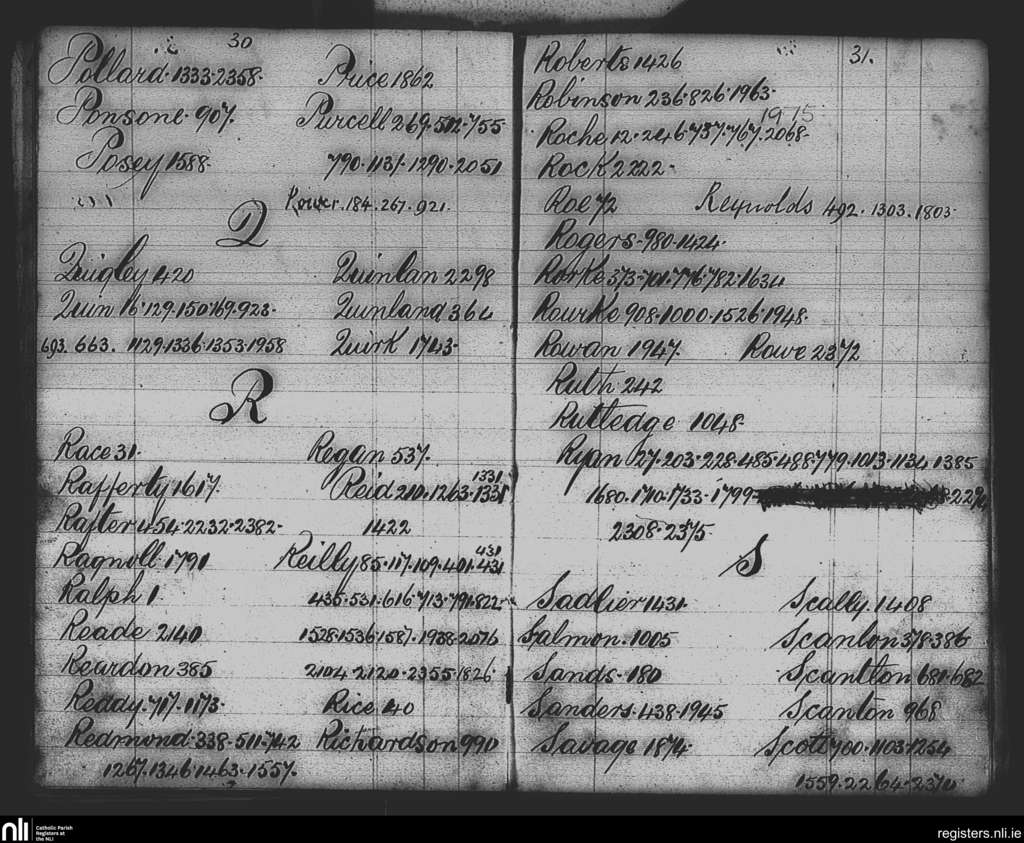 30
Pollard · 1333 · 2358 ·
Price 1862
Ponsone · 907.
Purcell 269 · 512 · 755
Posey 1588 ·
790 · 1131 · 1290 · 2051
184 . 267 . 921 .
Q
Quigley 420
Quinlan 2298
Quin 16 · 129 · 150 · 169 · 923 ·
Quinland 364
693. 663. 1129 · 1336 · 1353 · 1958
Quirk 1743 ·
R
Race 31 ·
Regan 537.
Rafferty 1617.
Reid 210 · 1263 · 1331
1331
Rafter 454 · 2232 · 2382 ·
1422
Ragnoll · 1791
Reilly 85 · 117 · 109 · 401 · 431
431
Ralph 1
435 · 531 · 616 · 713 · 791 · 822
Reade 2140
1528 · 1536 · 1587 · 1938 · 2076
Reardon 385
2104 · 2120 · 2355 · 1826
Reddy · 717 · 1173 ·
Rice 40
Redmond · 338 · 511 · 742
Richardson 990
1267 · 1346 · 1463 · 1557.
31.
Roberts 1426
Robinson 236 · 826 · 1963 ·
1975
Roche 12 · 246 · 737 · 767 · 2068 ·
Rock 2222 ·
Roe 72
Reynolds 492 . 1303 . 1803 ·
Rogers · 980 · 1424 ·
Rorke 373 · 701 · 776 · 782 · 1634
Rourke 908 · 1000 · 1526 · 1948 ·
Rowan 1947.
Rowe 2372
Ruth · 242
Rutledge 1048 ·
Ryan 27 · 203 · 228 · 485 · 488 · 779 · 1013 · 1134 · 1385
1680 · 1710 · 1733 · 1799
2308 · 2375 ·
S
Sadlier 1431 ·
Scally. 1408
Salmon. 1005
Scanlon 378 · 386
Sands · 180
Scantlon 681 · 682
Sanders · 438 · 1945
Scanton 968
Savage 1874 ·
Scott 700 · 1103 · 1254
1559 · 2264 · 2370
nli
Catholic Parish
Registers at
the NLI
registers.nli.ie